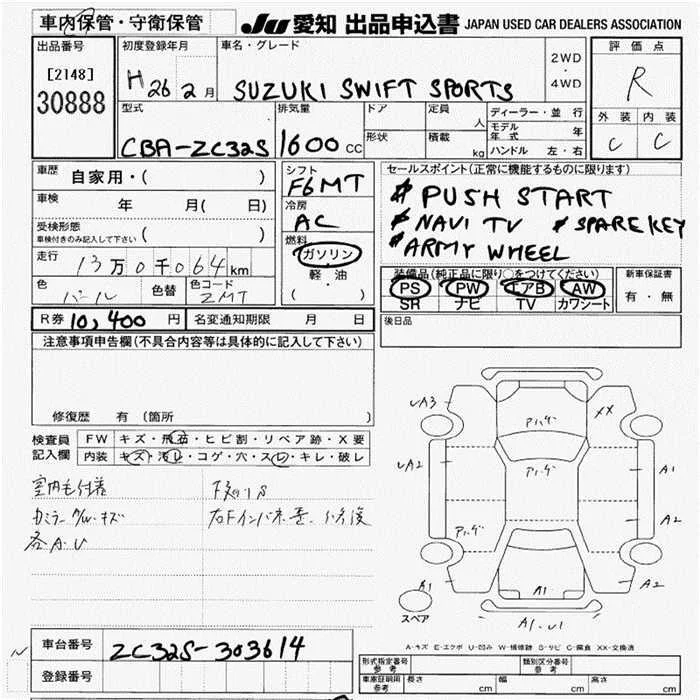 車内保管・守衛保管 JU 愛知 出品申込書 JAPAN USED CAR DEALERS ASSOCIATION
出品番号 初度登録年月 車名・グレード 2WD・4WD 評価点
[2148] H 26 2月 SUZUKI SWIFT SPORTS R
30888
型式 排気量 ドア 定員 人 ディーラー・並行 外装 内装
CBA-ZC32S 1600 CC 形状 積載 kg モデル年式 年 C C
ハンドル 左・右
車歴 自家用・( ) シフト セールスポイント(正常に機能するものに限ります)
F6MT
車検 年 月( 日) 冷房 # PUSH START
AC # NAVI TV # SPARE KEY
受検形態 ( ) 燃料 # ARMY WHEEL
車検付きのみ記入して下さい
走行 13万0千064km ガソリン 装備品(純正品に限り○をつけてください) 新車保証書
軽・油 PS PW エアB AW 有・無
色 パール 色替 色コード ZMT ( ) SR ナビ TV カワシート
R券 10,400 円 名変通知期限 月 日 後日品
注意事項申告欄(不具合内容等は具体的に記入して下さい)
修復歴 有(箇所 )
検査員 FW キズ・飛石・ヒビ割・リペア跡・X要
記入欄 内装 キズ・汚レ・コゲ・穴・スレ・キレ・破レ
各A.U
UA3 アハ゜ーゲ XX
UA2 アハ゜ーゲ A1
アハ゜ーゲ A2
A1 A1 A2
スペア A1.U1
A-キズ E-エクボ U-凹み W-補修跡 S-サビ C-腐食 XX-交換済
車台番号 ZC32S-303614
登録番号
形式指定番号 参考 類別区分番号 参考
車庫証明用 参考 長さ cm 幅 cm 高さ cm